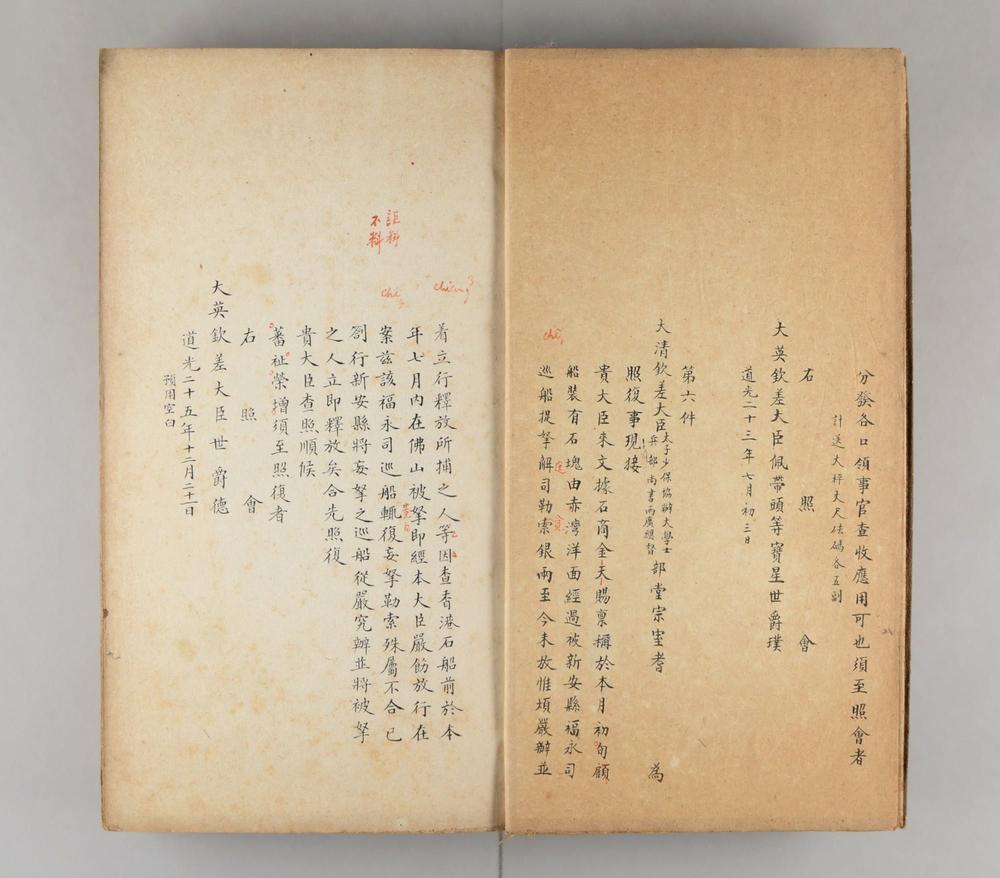 分發各口領事官查收應用可也須至照會者
計送大秤丈尺砝碼各五副
右照會
大英欽差大臣佩帶頭等寶星世爵璞
道光二十三年七月初三日
第六件
大清欽差大臣太子少保協辦大學士兵部尚書兩廣總督部堂宗室耆 為
照復事現接
貴大臣來文據石商金天賜稟稱於本月初旬顧
船裝有石塊由赤灣洋面經過被新安縣福永司
巡船捉拏解司勒索銀兩至今未放惟煩嚴辦並
chî
着立行釋放所捕之人等因查香港石船前於本
年七月內在佛山被拏即經本大臣嚴飭放行在
案茲該福永司巡船輒復妄拏勒索殊屬不合已
劄行新安縣將妄拏之巡船從嚴究辦並將被拏
之人立即釋放矣合先照復
貴大臣查照順候
蕃祉榮增須至照復者
右照會
大英欽差大臣世爵德
道光二十五年十二月二十一日
預用空白
詎料
不料